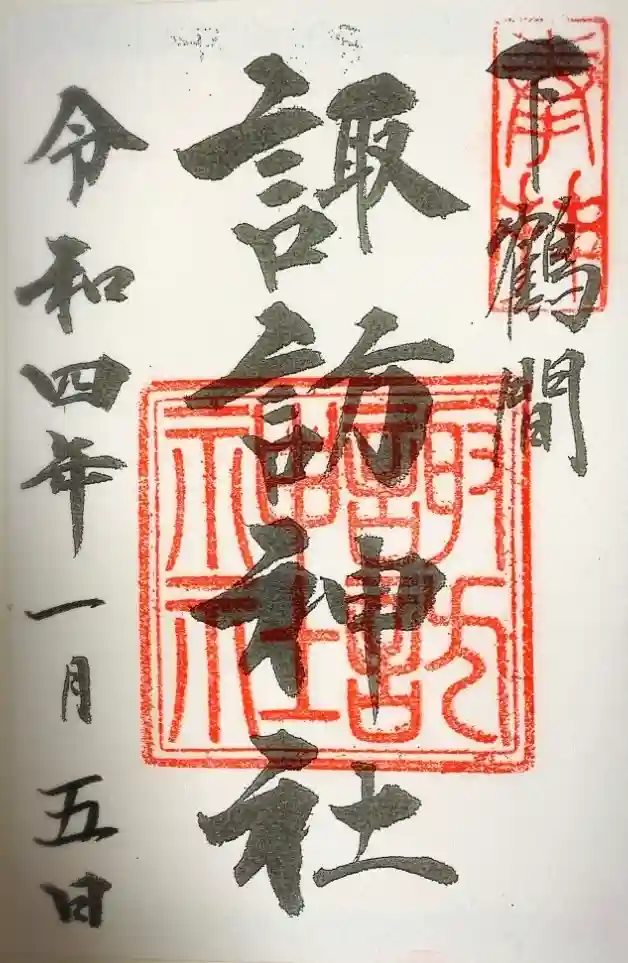 奉拝
下鶴間
諏訪神社
諏訪
神社
令和四年一月五日